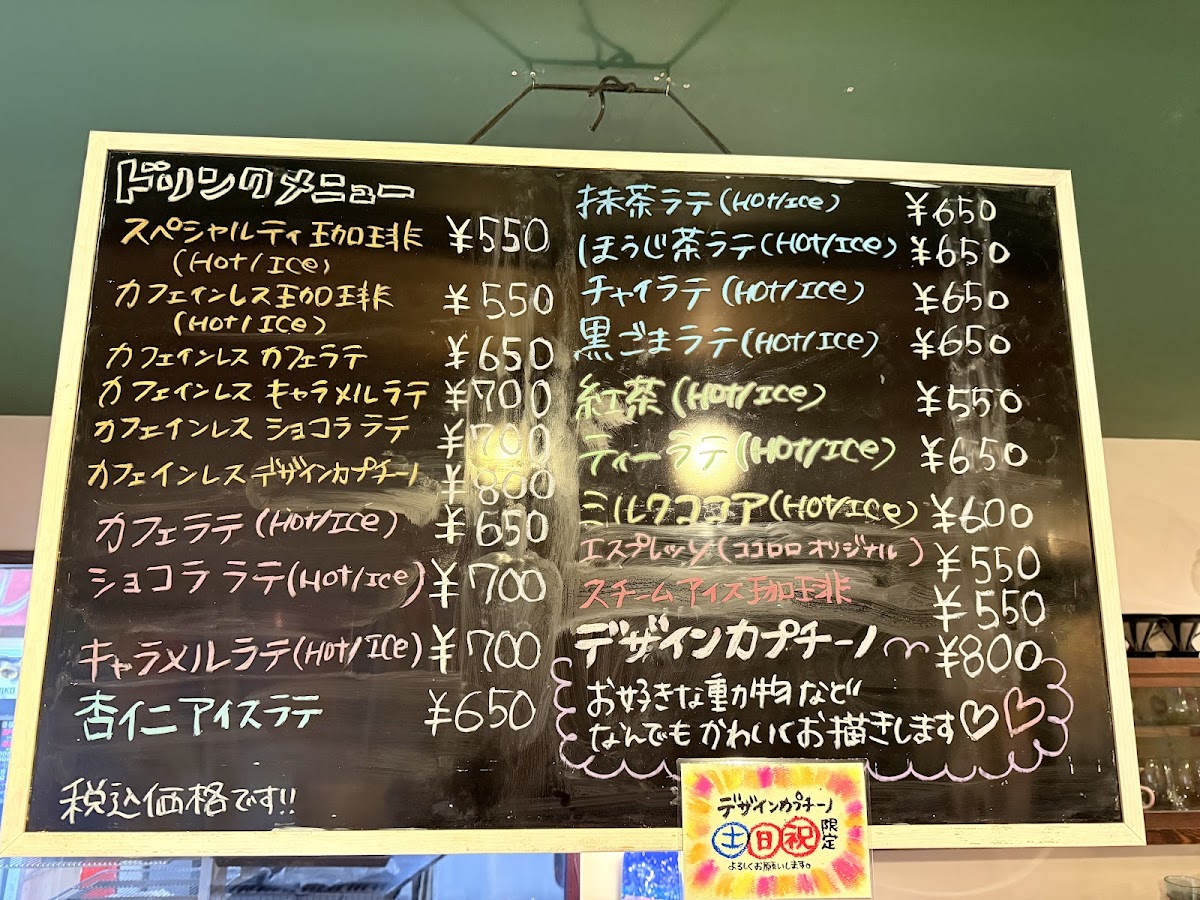 ドリンクメニュー
スペシャルティ珈琲 ¥550
(Hot/Ice)
カフェインレス珈琲 ¥550
(Hot/Ice)
カフェインレス カフェラテ ¥650
カフェインレス キャラメルラテ ¥700
カフェインレス ショコララテ ¥700
カフェインレス デザインカプチーノ ¥800
カフェラテ (Hot/Ice) ¥650
ショコララテ(Hot/Ice) ¥700
キャラメルラテ(Hot/Ice) ¥700
杏仁アイスラテ ¥650
税込価格です!!
抹茶ラテ(Hot/Ice) ¥650
ほうじ茶ラテ(Hot/Ice) ¥650
チャイラテ (Hot/Ice) ¥650
黒ごまラテ(Hot/Ice) ¥650
紅茶(Hot/Ice) ¥550
ティーラテ(Hot/Ice) ¥650
ミルクココア(Hot/Ice) ¥600
エスプレッソ(ココロロ オリジナル) ¥550
スチームアイス珈琲 ¥550
デザインカプチーノ ¥800
お好きな動物など
なんでもかわいくお描きします♡♡
デザインカプチーノ
土日祝限定
よろしくお願いします。